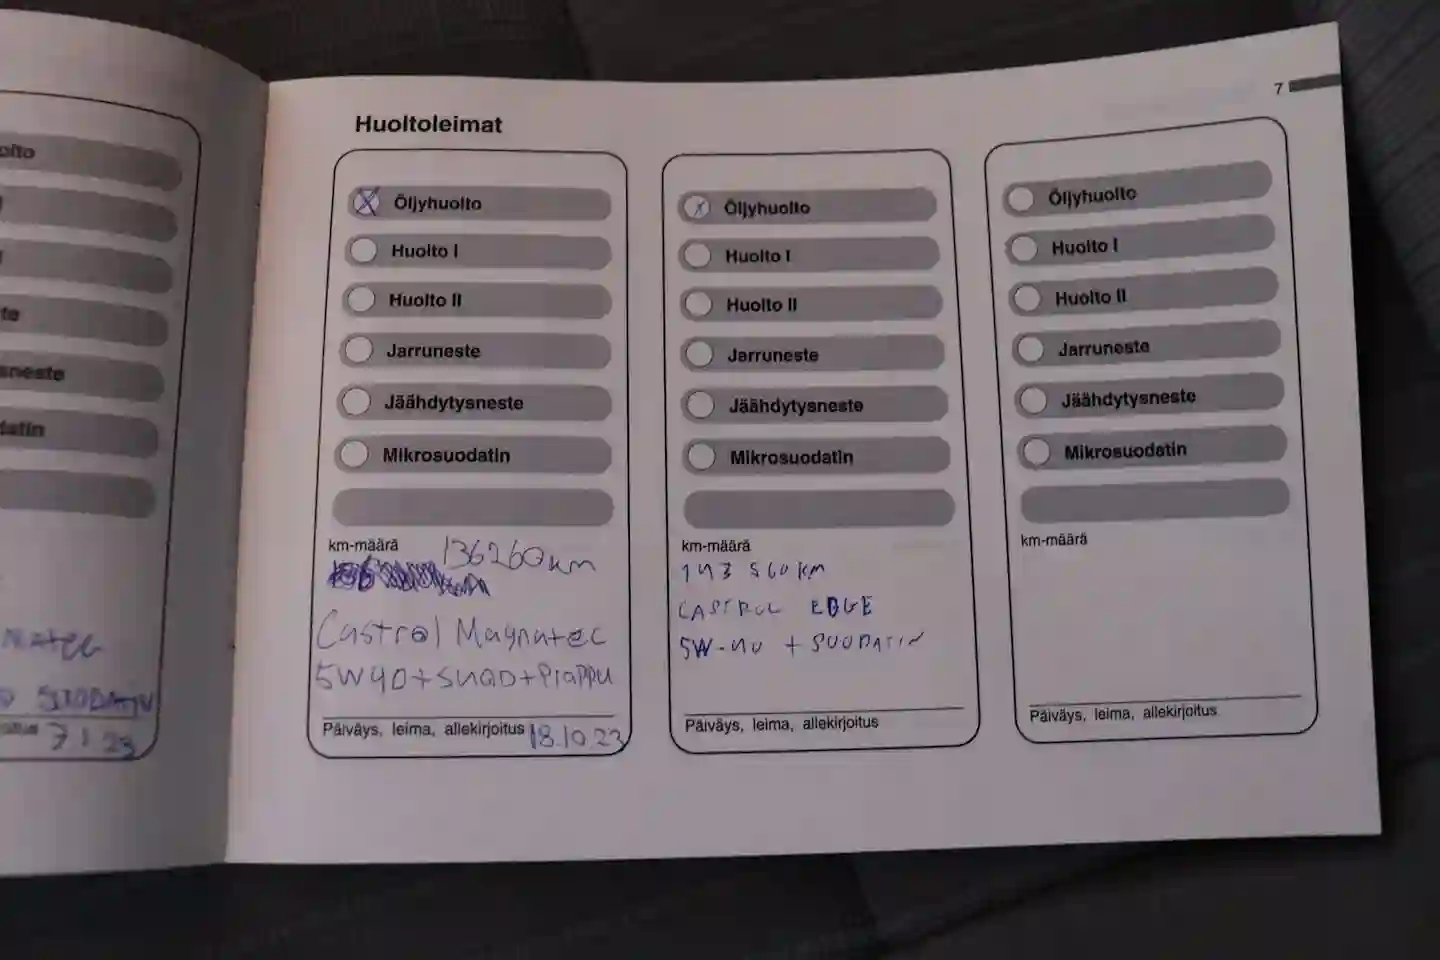 neste
datin
SUODATIN
7.1.23
7
Huoltoleimat
Öljyhuolto
Huolto I
Huolto II
Jarruneste
Jäähdytysneste
Mikrosuodatin
km-määrä
136260km
Castrol Magnatec
5W40+suod+Proppu
Päiväys, leima, allekirjoitus 18.10.23
Öljyhuolto
Huolto I
Huolto II
Jarruneste
Jäähdytysneste
Mikrosuodatin
km-määrä
143 560 KM
CASTROL EDGE
5W-40 + SUODATIN
Päiväys, leima, allekirjoitus
Öljyhuolto
Huolto I
Huolto II
Jarruneste
Jäähdytysneste
Mikrosuodatin
km-määrä
Päiväys, leima, allekirjoitus